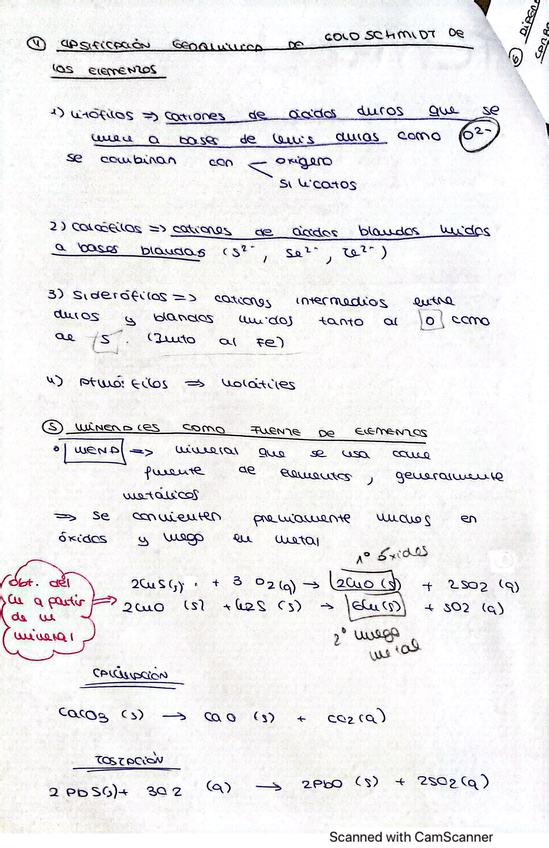 ④ CLASIFICACIÓN GEOQUÍMICA DE GOLDSCHMIDT DE
LOS ELEMENTOS
1) Litófilos => cationes de ácidos duros que se
unen a bases de Lewis duras como O2-
se combinan con oxígeno
silicatos
2) calcófilos => cationes de ácidos blandos unidos
a bases blandas (S2-, Se2-, Te2-)
3) Siderófilos => cationes intermedios entre
duros y blandos unidos tanto al O como
al S. (Junto al Fe)
4) Atmófilos => volátiles
⑤ MINERALES COMO FUENTE DE ELEMENTOS
MENA => mineral que se usa como
fuente de elementos, generalmente
metálicos
=> se convierten previamente muchos en
óxidos y luego en metal
1º óxidos
obt. del
Cu a partir
de un
mineral
2CuS(s) + 3 O2(g) → 2CuO(s) + 2SO2(g)
2CuO (s) + Cu2S (s) → 6Cu(s) + SO2 (g)
2º luego
metal
CALCINACIÓN
CaCO3 (s) → CaO (s) + CO2(g)
TOSTACIÓN
2 PbS(s) + 3O2 (g) → 2PbO (s) + 2SO2(g)
⑥
Scanned with CamScanner